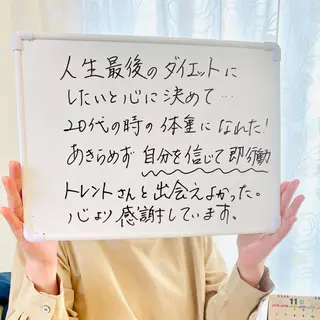 人生最後のダイエットに
したいと心に決めて…
20代の時の体重になれた!
あきらめず自分を信じて即行動
トレントさんと出会えよかった。
心より感謝しています。
11